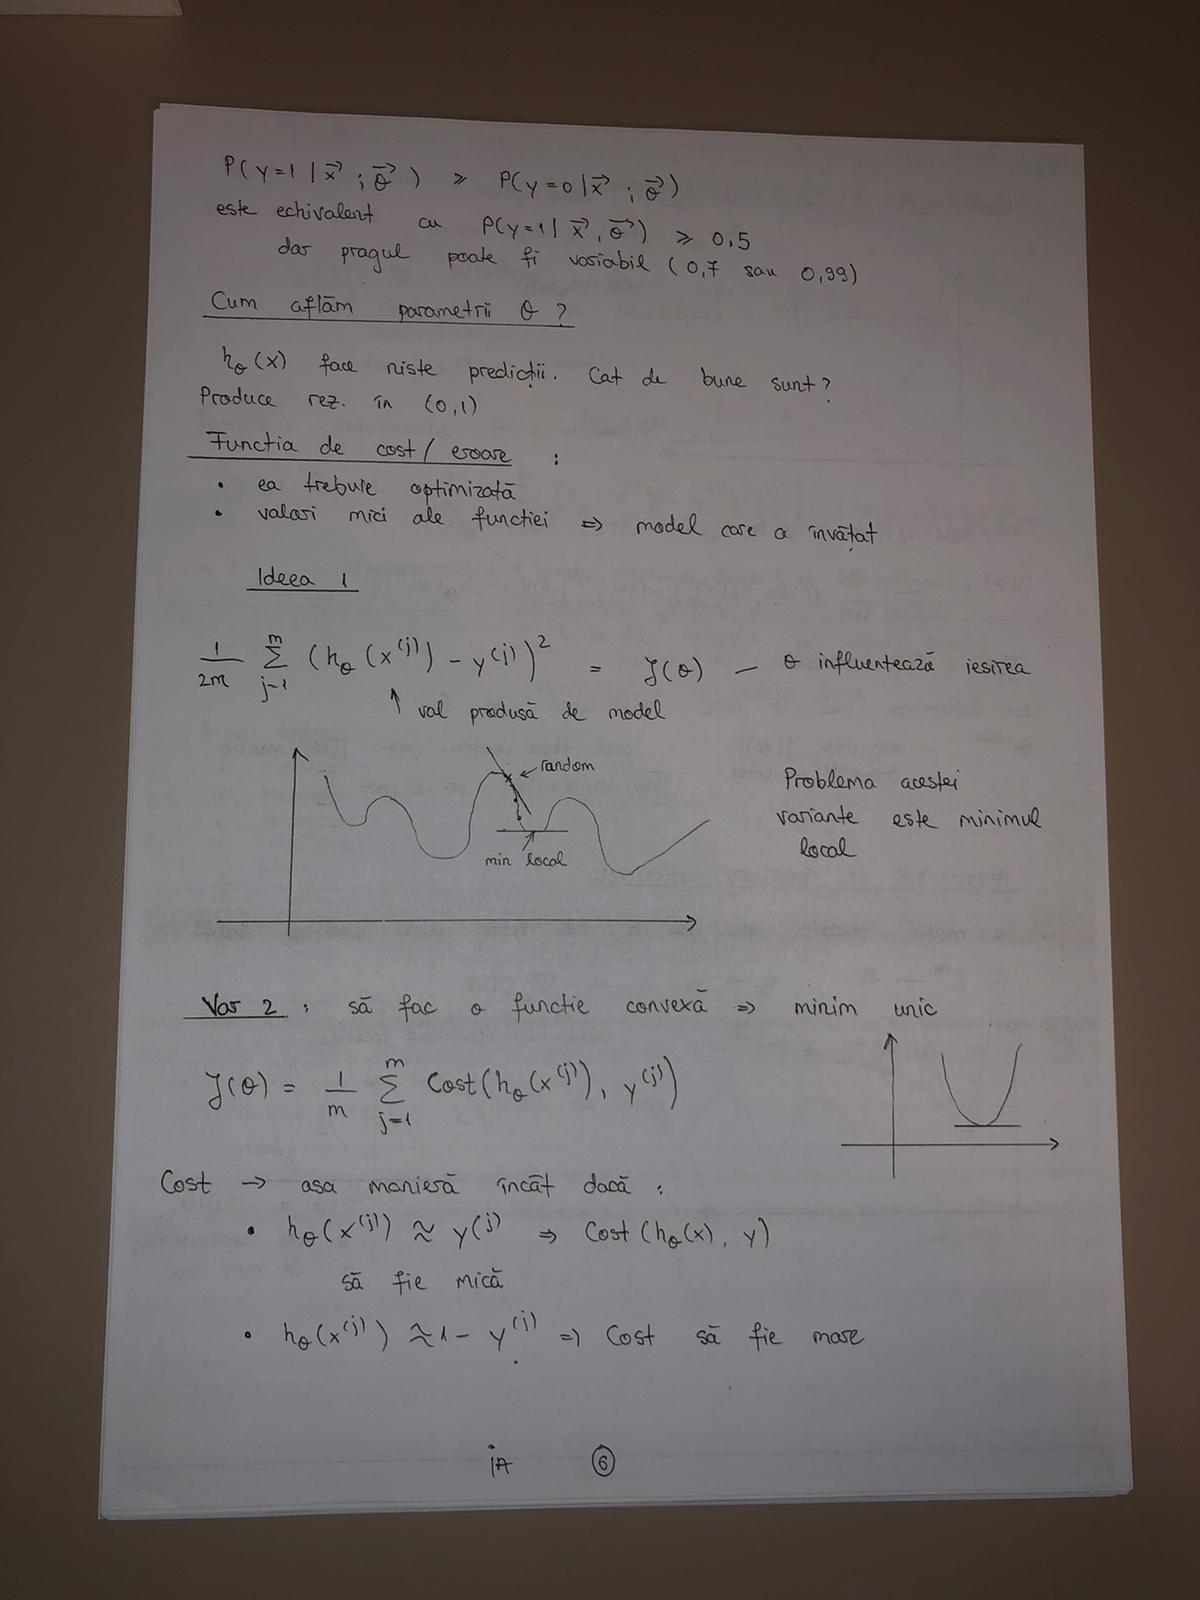 P(y=1 | x⃗ ; θ⃗ ) ≥ P(y=0 | x⃗ ; θ⃗ )
este echivalent cu P(y=1 | x⃗, θ⃗ ) ≥ 0,5
dar pragul poate fi variabil (0,7 sau 0,99)
Cum aflăm parametrii θ ?
hθ(x) face niste predicții. Cat de bune sunt?
Produce rez. în (0,1)
Functia de cost / eroare :
• ea trebuie optimizată
• valori mici ale functiei ⇒ model care a învățat
Ideea 1
1/2m Σ_{j=1}^{m} (hθ(x^(j)) - y^(j))² = J(θ) — θ influentează iesirea
↑ val produsă de model
random
min local
Problema acestei
variante este minimul
local
Var 2 : să fac o functie convexă ⇒ minim unic
J(θ) = 1/m Σ_{j=1}^{m} Cost(hθ(x^(j)), y^(j))
Cost → asa manieră încât dacă :
• hθ(x^(j)) ≈ y^(j) ⇒ Cost(hθ(x), y)
să fie mică
• hθ(x^(j)) ≈ 1 - y^(j) ⇒ Cost să fie mare
IA 6